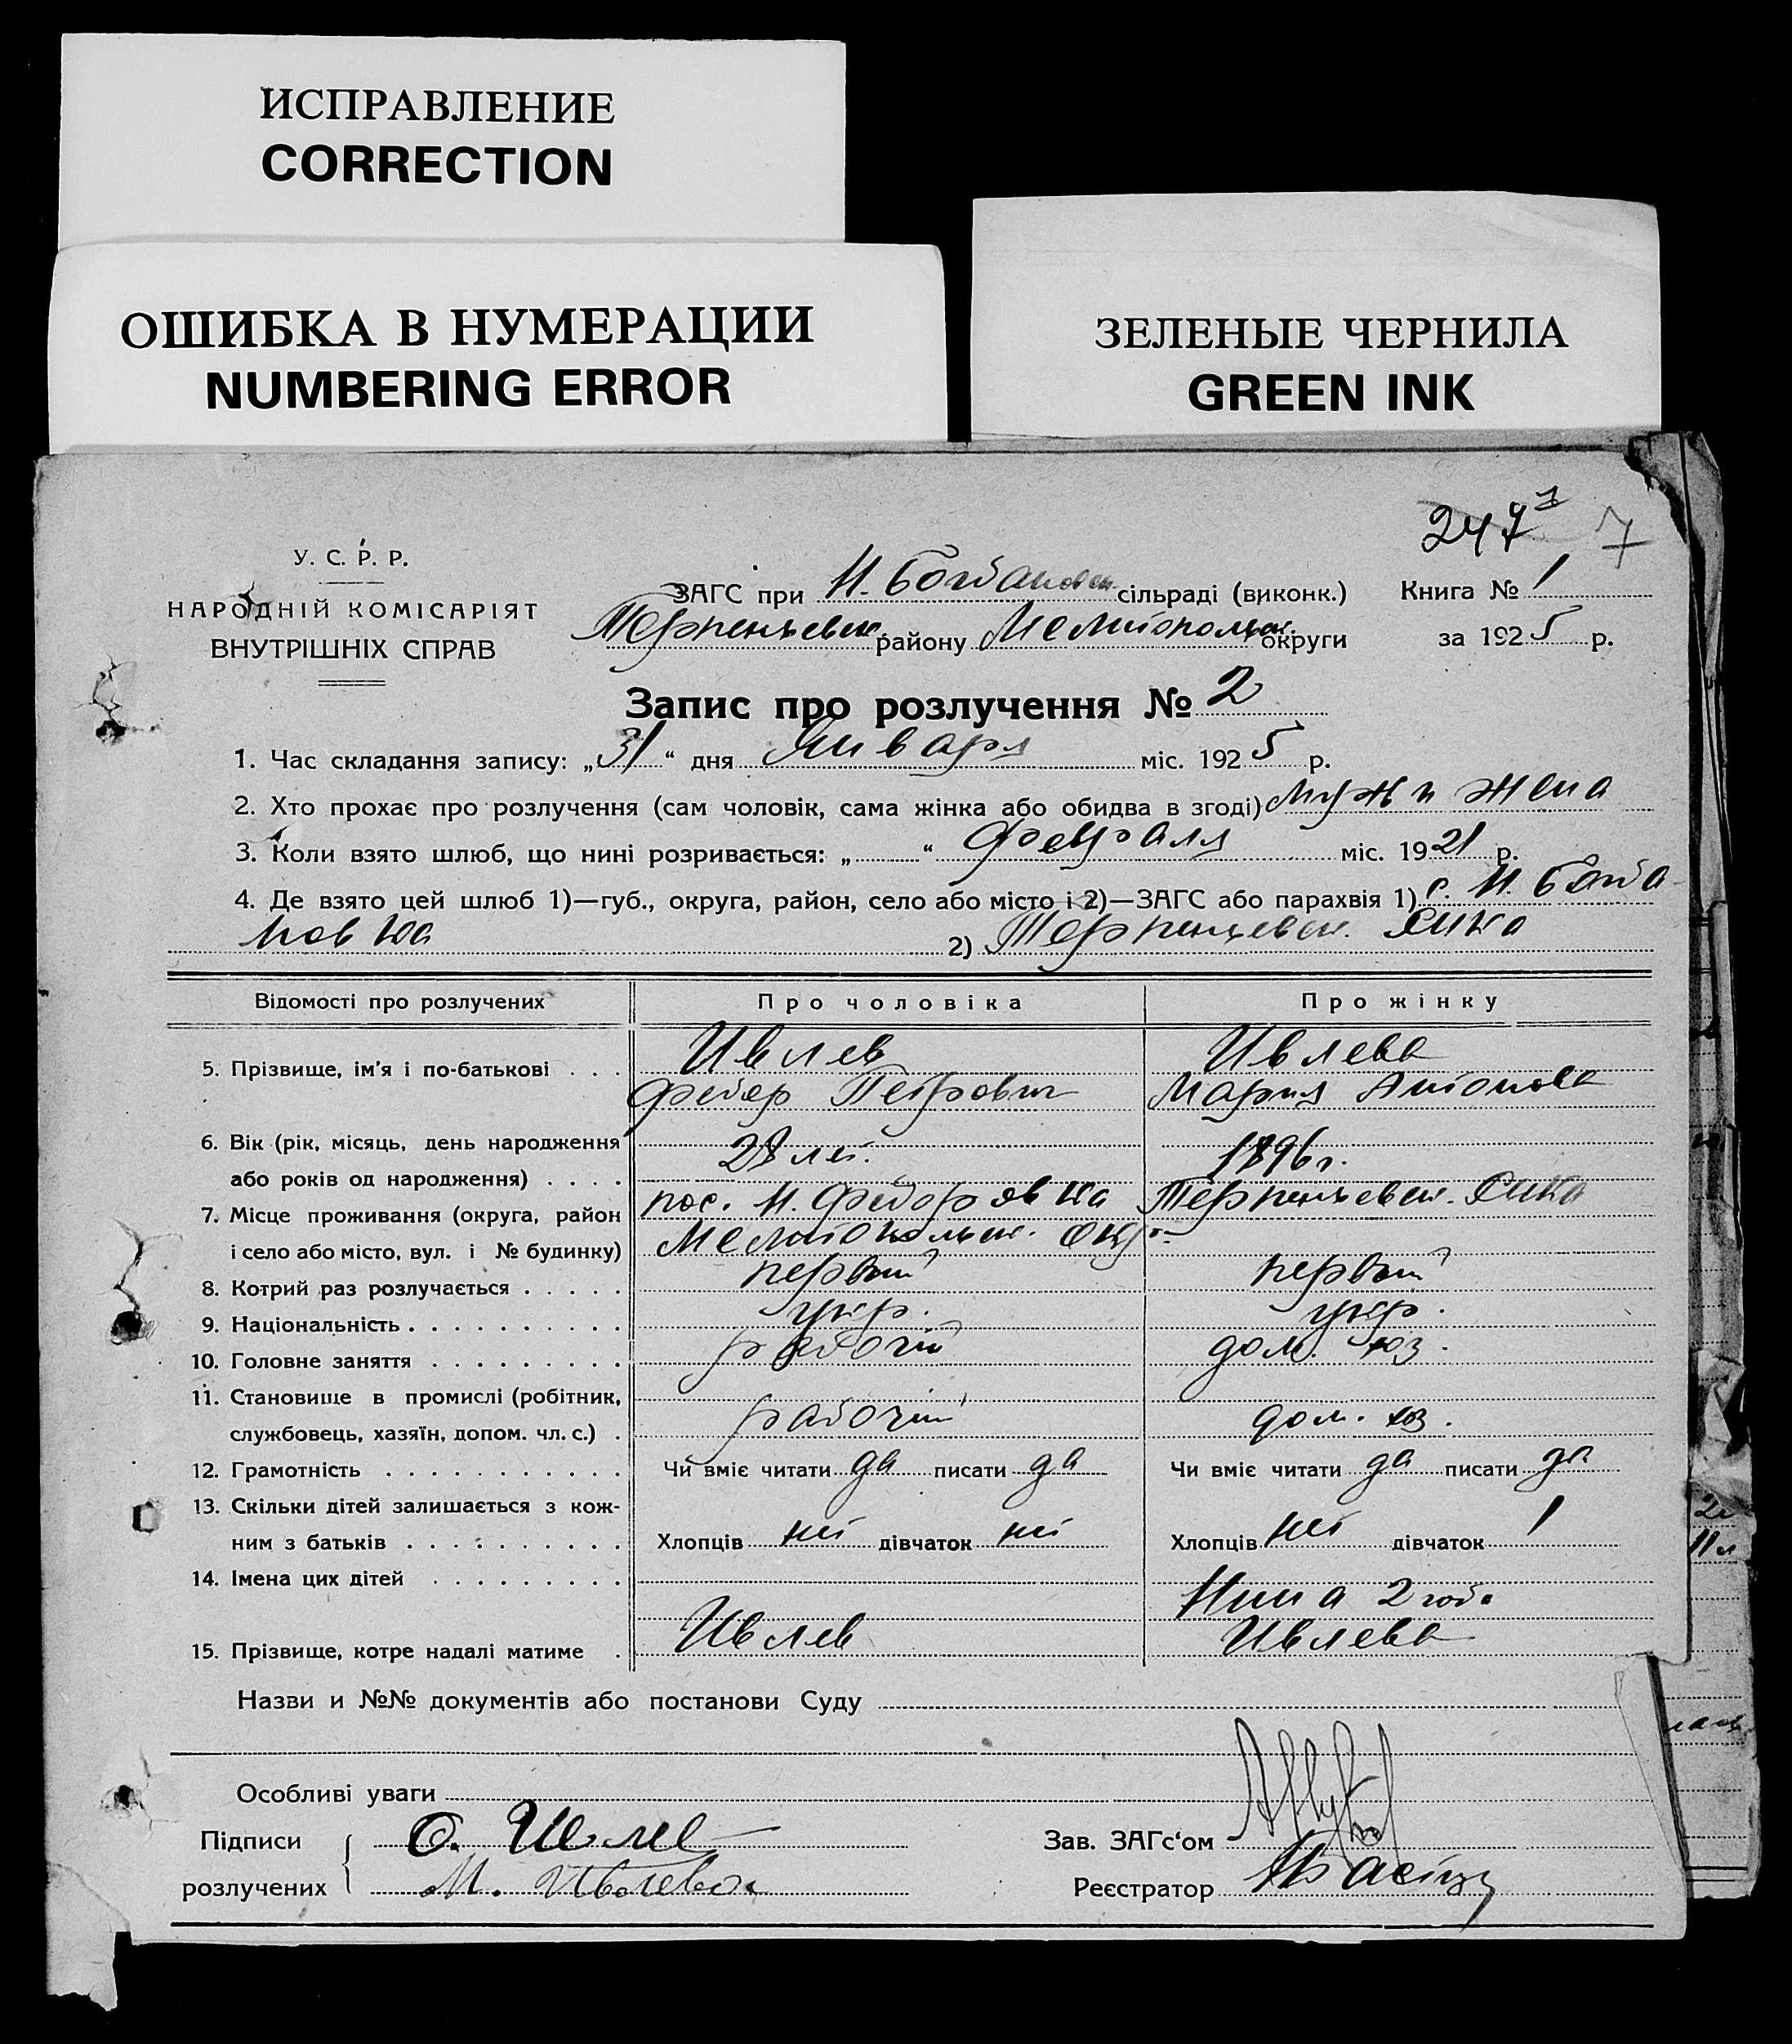 ИСПРАВЛЕНИЕ
CORRECTION
ОШИБКА В НУМЕРАЦИИ
NUMBERING ERROR
ЗЕЛЕНЫЕ ЧЕРНИЛА
GREEN INK
247 7
У. С. Р. Р.
НАРОДНІЙ КОМІСАРІЯТ
ВНУТРІШНІХ СПРАВ
ЗАГС при Н. Богдановск. сільраді (виконк.) Книга № 1
Терпеньевск. району Мелитопольск. округи за 1925 р.
Запис про розлучення № 2
1. Час складання запису: „31“ дня Января міс. 1925 р.
2. Хто прохає про розлучення (сам чоловік, сама жінка або обидва в згоді) муж и жена
3. Коли взято шлюб, що нині розривається: „ “ Февраля міс. 1921 р.
4. Де взято цей шлюб 1)—губ., округа, район, село або місто і 2)—ЗАГС або парахвія 1) с. Н. Богда
новка 2) Терпеньевск.
Відомості про розлучених Про чоловіка Про жінку
5. Прізвище, ім'я і по-батькові . . . Ивлев Ивлева
Федор Петрович Мария Антонова
6. Вік (рік, місяць, день народження
або років од народження) . . . . 28 лет. 1896 г.
7. Місце проживання (округа, район пос. Н. Федоровка Терпеньевск.
і село або місто, вул. і № будинку) Мелитопольск. окр.
8. Котрий раз розлучається . . . . . первый первый
9. Національність . . . . . . . . . . укр. укр.
10. Головне заняття . . . . . . . . . рабочий дом. хоз.
11. Становище в промислі (робітник,
службовець, хазяїн, допом. чл. с.) . рабочий дом. хоз.
12. Грамотність . . . . . . . . . . . Чи вміє читати да писати да Чи вміє читати да писати да
13. Скільки дітей залишається з кож-
ним з батьків . . . . . . . . . . Хлопців нет дівчаток нет Хлопців нет дівчаток 1
14. Імена цих дітей . . . . . . . . .
Нина 2 года
15. Прізвище, котре надалі матиме . Ивлев Ивлева
Назви и №№ документів або постанови Суду
Особливі уваги
Підписи
розлучених
Ивлев
М. Ивлева
Зав. ЗАГс'ом
Реєстратор